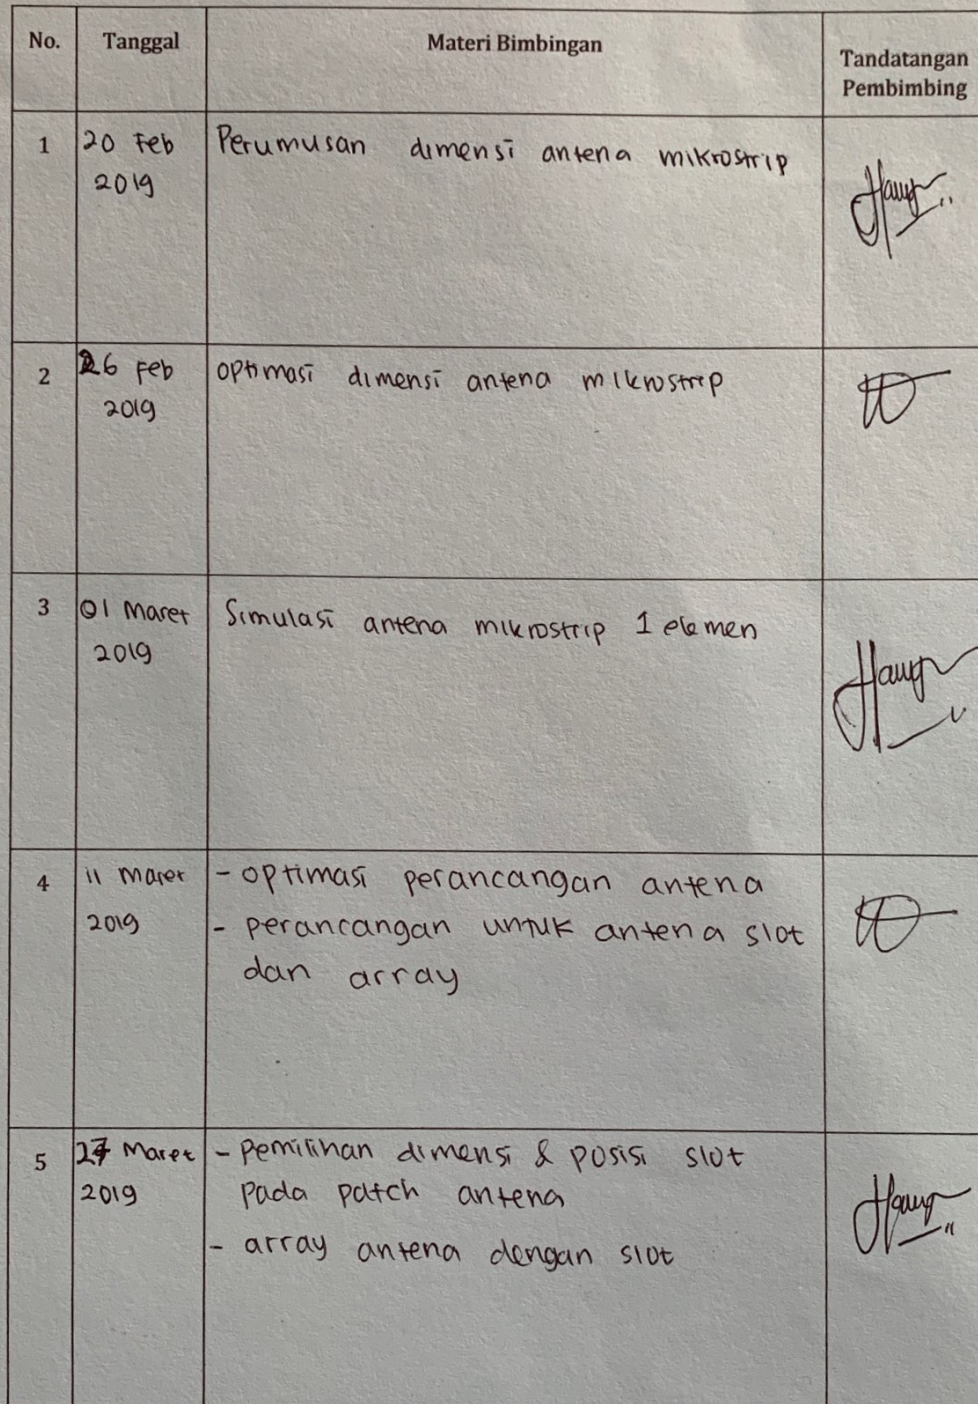 No. Tanggal Materi Bimbingan Tandatangan
Pembimbing
1 20 Feb Perumusan dimensi antena mikrostrip
2019
2 26 Feb optimasi dimensi antena mikrostrip
2019
3 01 Maret Simulasi antena mikrostrip 1 elemen
2019
4 11 Maret - optimasi perancangan antena
2019 - perancangan untuk antena slot
dan array
5 27 Maret - pemilihan dimensi & posisi slot
2019 pada patch antena
- array antena dengan slot